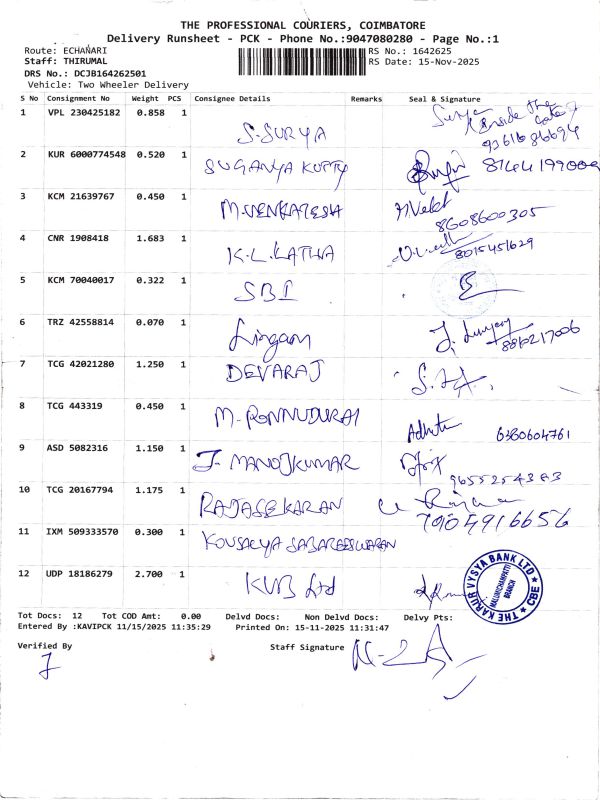 THE PROFESSIONAL COURIERS, COIMBATORE
Delivery Runsheet - PCK - Phone No.:9047080280 - Page No.:1
Route: ECHANARI RS No.: 1642625
Staff: THIRUMAL RS Date: 15-Nov-2025
DRS No.: DCJB164262501
Vehicle: Two Wheeler Delivery
S No Consignment No Weight PCS Consignee Details Remarks Seal & Signature
1 VPL 230425182 0.858 1 S.SURYA Surya Inside the
2 KUR 6000774548 0.520 1 SUGANYA KUTTY
3 KCM 21639767 0.450 1 M.VENKATESH 8608600305
4 CNR 1908418 1.683 1 K.L.LATHA 8015451629
5 KCM 70040017 0.322 1 SBI
6 TRZ 42558814 0.070 1 Lingam
7 TCG 42021280 1.250 1 DEVARAJ
8 TCG 443319 0.450 1 M. PONNUDURAI 6380604761
9 ASD 5082316 1.150 1 J. MANOJKUMAR
10 TCG 20167794 1.175 1 RAJASEKARAN 7904916656
11 IXM 509333570 0.300 1 KOUSALYA SABAREESWARAN
12 UDP 18186279 2.700 1 KVB Ltd
THE KARUR VYSYA BANK LTD CBE BRANCH
Tot Docs: 12 Tot COD Amt: 0.00 Delvd Docs: Non Delvd Docs: Delvy Pts:
Entered By :KAVIPCK 11/15/2025 11:35:29 Printed On: 15-11-2025 11:31:47
Verified By Staff Signature